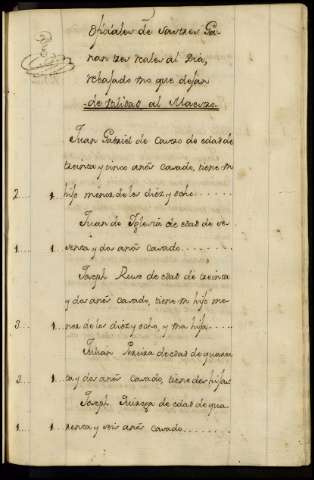 Ofiziales de Sastres Ga-
nan tres reales al Dia,
rebajado lo que dejan
de utilidad al Maestro.
Juan Gabriel de Castro de edad de
treinta y cinco años casado, tiene un
2... 1. hijo menor de los diez y ocho
Juan de Iglesia de edad de se-
1... 1. senta y dos años casado.......
Joseph Ruso de edad de treinta
y dos años casado, tiene un hijo me-
3... 1. nor de los diez y ocho, y una hija.....
Julian Pereira de edad de quaren
3... 1. ta y dos años casado, tiene dos hijas
Joseph de edad de qua-
1... 1. renta y seis años casado.....